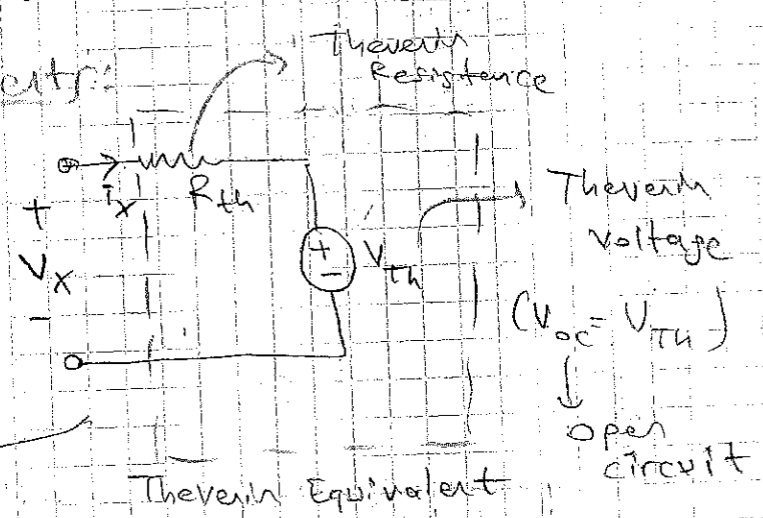 Thevenin
Resistence
+
Ix
Rth
Vx
-
+
-
VTh
Thevenin
voltage
(Voc = VTh)
Open
circuit
Thevenin Equivalent